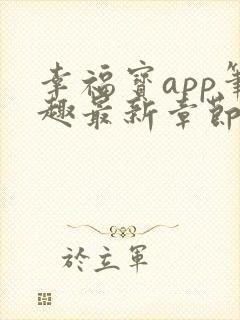 幸福寶app筆
趣最新章節
於立軍